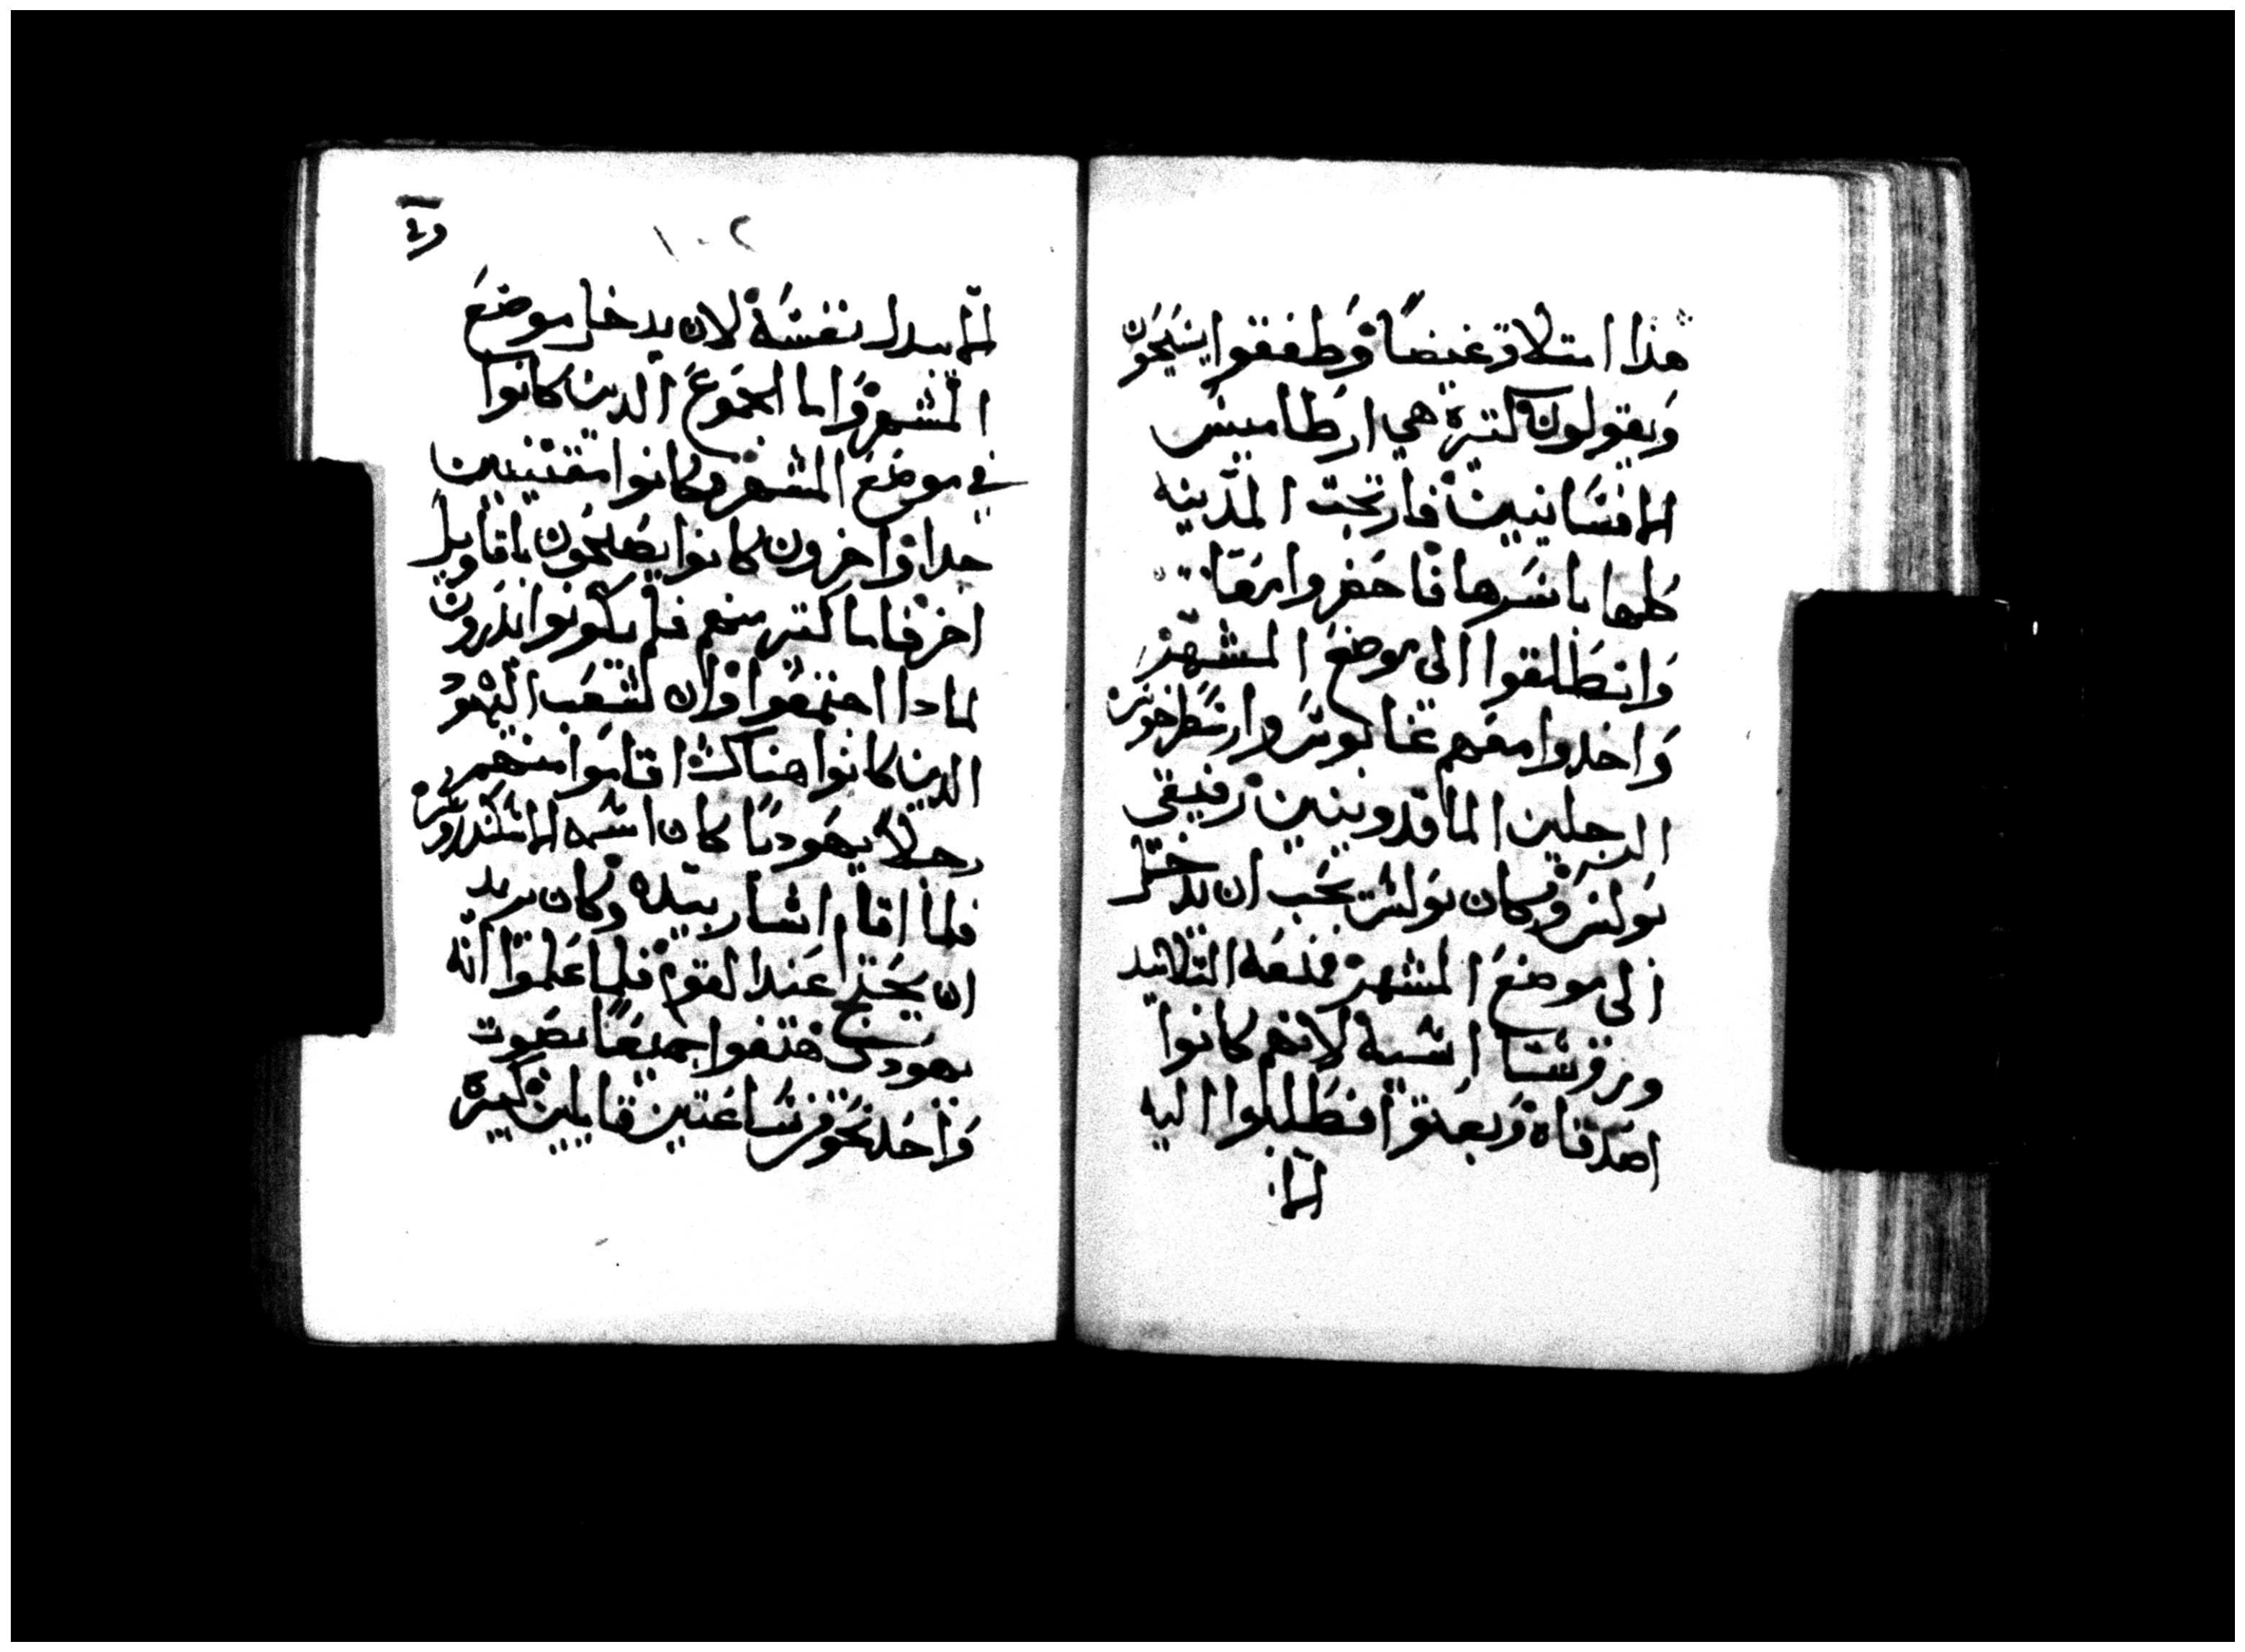 هذا امتلاو غيضًا وطفقوا يسيحون
ويقولون كبيرة هي ارطاميس
الافسانيين فارتجت المدينه
كلها باسرها فاحضروا معًا
وانطلقوا الى موضع المشهر
واخدوا معهم غايوس وارسطرخوس
الرجلين الماقدونيين رفيقي
بولس وكان بولس يحب ان يدخل
الى موضع المشهر فمنعه التلاميد
وروسا اسية لانهم كانوا
اصدقاه وبعتوا فطلبوا اليه
لما
١٠٢
لما يبدل نفسه لان يدخل موضع
المشهر واما الجموع الدين كانوا
في موضع المشهر وكانوا مفتتنين
جدا واخرون كانوا يصيحون باقاويل
اخر فاما كتير منهم فلم يكونوا يدرون
لمادا اجتمعوا وان لشعب اليهود
الدين كانوا هناك اقاموا منهم
رجلًا يهوديًا كان اسمه الاسكندروس
فلما اقام اشار بيده وكان يريد
ان يحتج عند القوم فلما علموا انه
يهودي هتفوا جميعًا بصوت
واحد نحو من ساعتين قايلين كبيرة